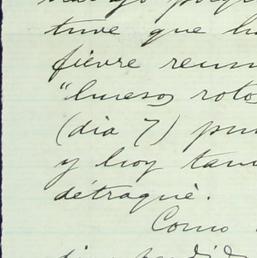 tuve que h
fievre reum
"huesos roto
(dia 7) pu
y hoy tam
détraqué.
Como